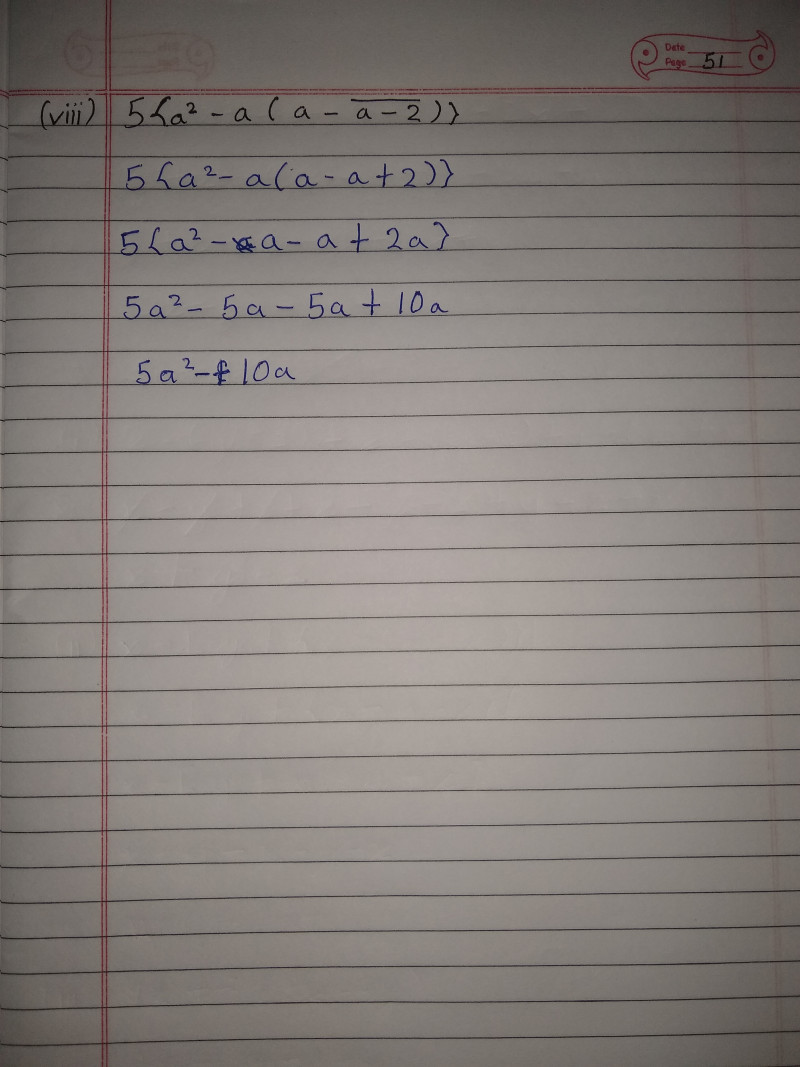 Date
Page 51
(viii) 5{a² - a ( a - a̅ ̅-̅ ̅2̅ )}
5{a² - a(a - a + 2)}
5{a² - a - a + 2a}
5a² - 5a - 5a + 10a
5a² - 10a